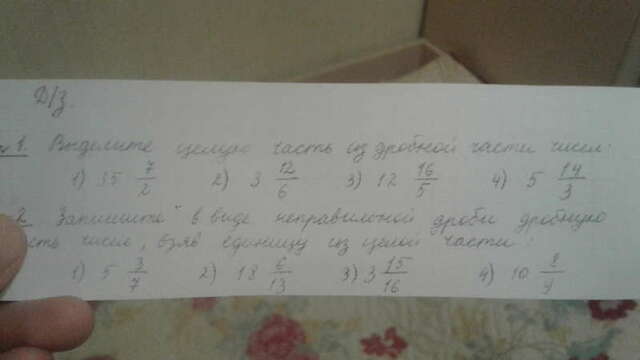 Д/з.
1. Выделите целую часть из дробной части чисел:
1) 35 7/2 2) 3 12/6 3) 12 16/5 4) 5 14/3
2 Запишите в виде неправильной дроби дробную
сть чисел, взяв единицу из целой части:
1) 5 3/7 2) 18 6/13 3) 3 15/16 4) 10